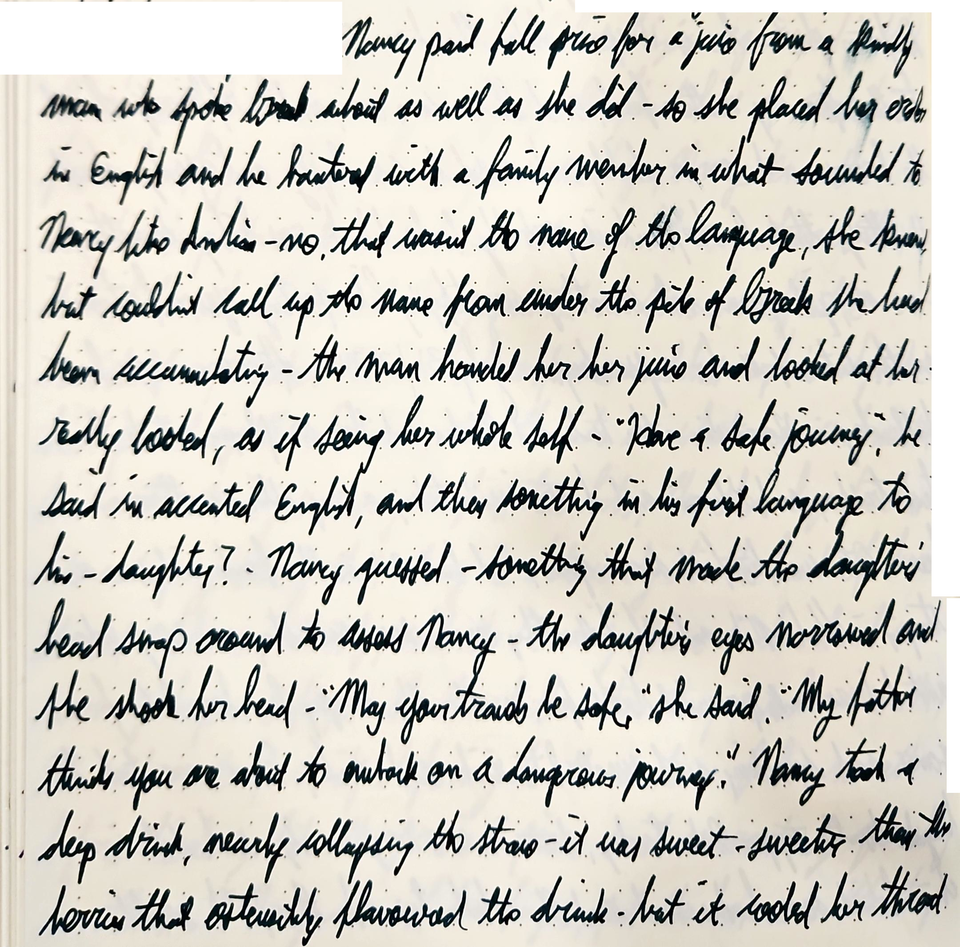 Nancy paid full price for a juice from a kindly
man who spoke Greek about as well as she did - so she placed her order
in English and he bantered with a family member in what sounded to
Nancy like Indian - no, that wasn't the name of the language, she knew,
but couldn't call up the name from under the pile of Greek she had
been accumulating - the man handed her her juice and looked at her
really looked, as if seeing her whole self - "Have a safe journey", he
said in accented English, and then something in his first language to
his - daughter? - Nancy guessed - something that made the daughter's
head snap around to assess Nancy - the daughter's eyes narrowed and
she shook her head - "May your travels be safe," she said. "My father
thinks you are about to embark on a dangerous journey." Nancy took a
deep drink, nearly collapsing the straw - it was sweet - sweeter than the
berries that ostensibly flavoured the drink - but it cooled her throat